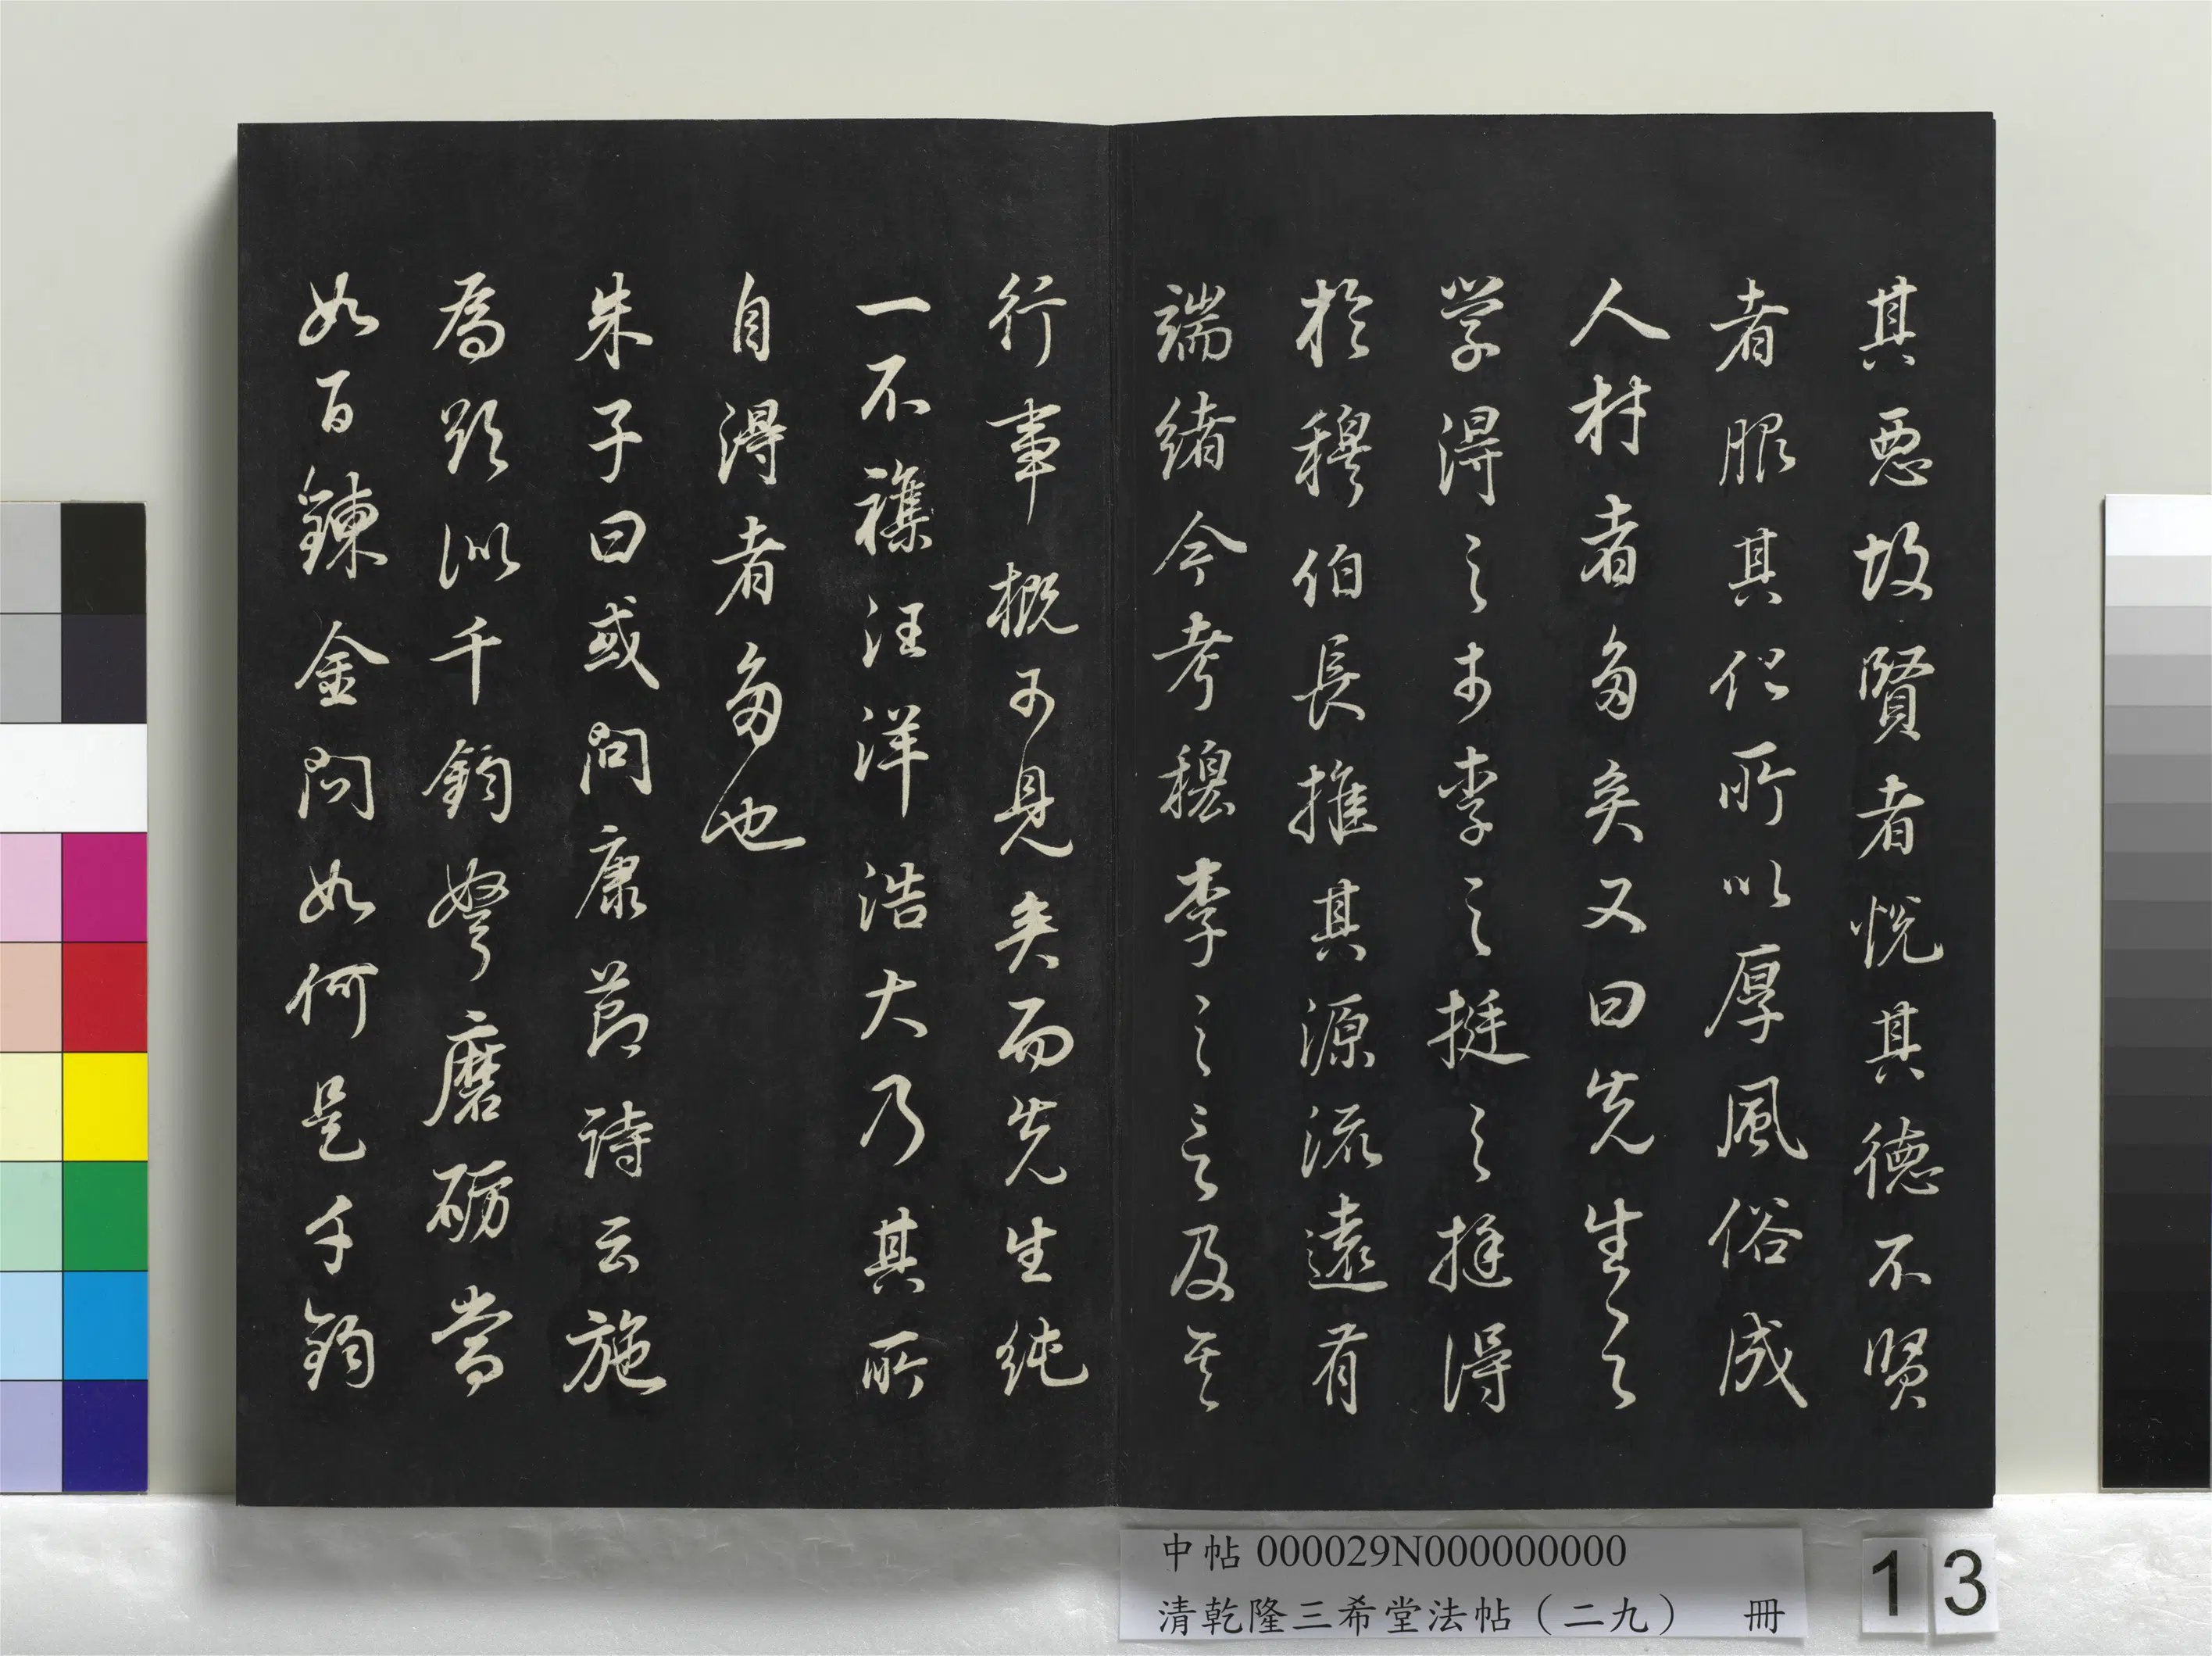 其惡故賢者悅其德不賢
者服其化所以厚風俗成
人材者多矣又曰先生之
学得之於李之挺之挺得
於穆伯長推其源流遠有
端緒今考穆李之言及其
行事概可見矣而先生純
一不襍汪洋浩大乃其所
自得者多也
朱子曰或問康节詩云施
為欲似千鈞弩磨砺當
如百鍊金問如何是千鈞
中帖 000029N000000000
清乾隆三希堂法帖（二九） 冊
13